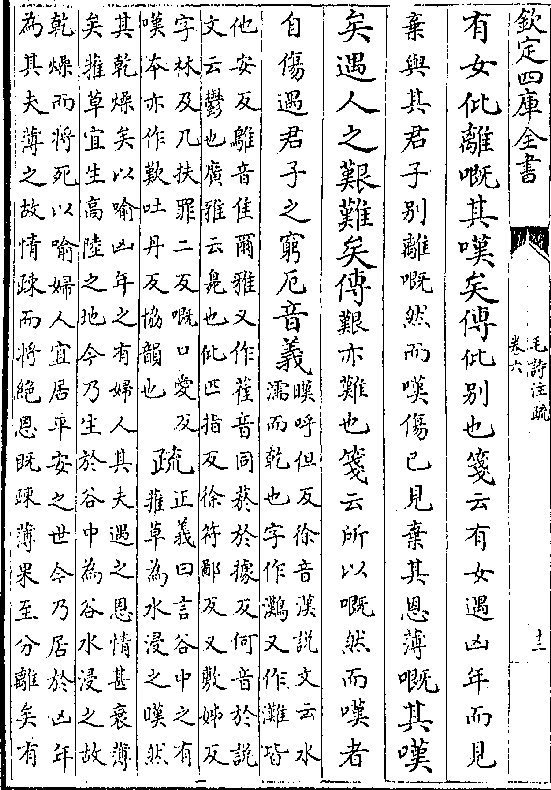 欽定四庫全書
毛詩注疏
卷六
十二
有女仳離嘅其嘆矣傳仳别也箋云有女遇凶年而見
棄與其君子别離嘅然而嘆傷己見棄其恩薄嘅其嘆
矣遇人之艱難矣傳艱亦難也箋云所以嘅然而嘆者
自傷遇君子之窮厄音義
暵呼但反徐音漢説文云水
濡而乾也字作鸂又作灘皆
他安反鵻音隹爾雅又作萑音同菸於據反何音於説
文云鬱也廣雅云㲋也仳匹指反徐符鄙反又敷姊反
字林父几扶罪二反嘅口愛反
嘆本亦作歎吐丹反協韻也
疏
正義曰言谷中之有
蓷草為水浸之暵然
其乾燥矣以喻凶年之有婦人其夫遇之恩情甚衰薄
矣蓷草宜生髙陸之地今乃生於谷中為谷水浸之故
乾燥而將死以喻婦人宜居平安之世今乃居於凶年
為其夫薄之故情疎而將絶恩既疎薄果至分離矣有